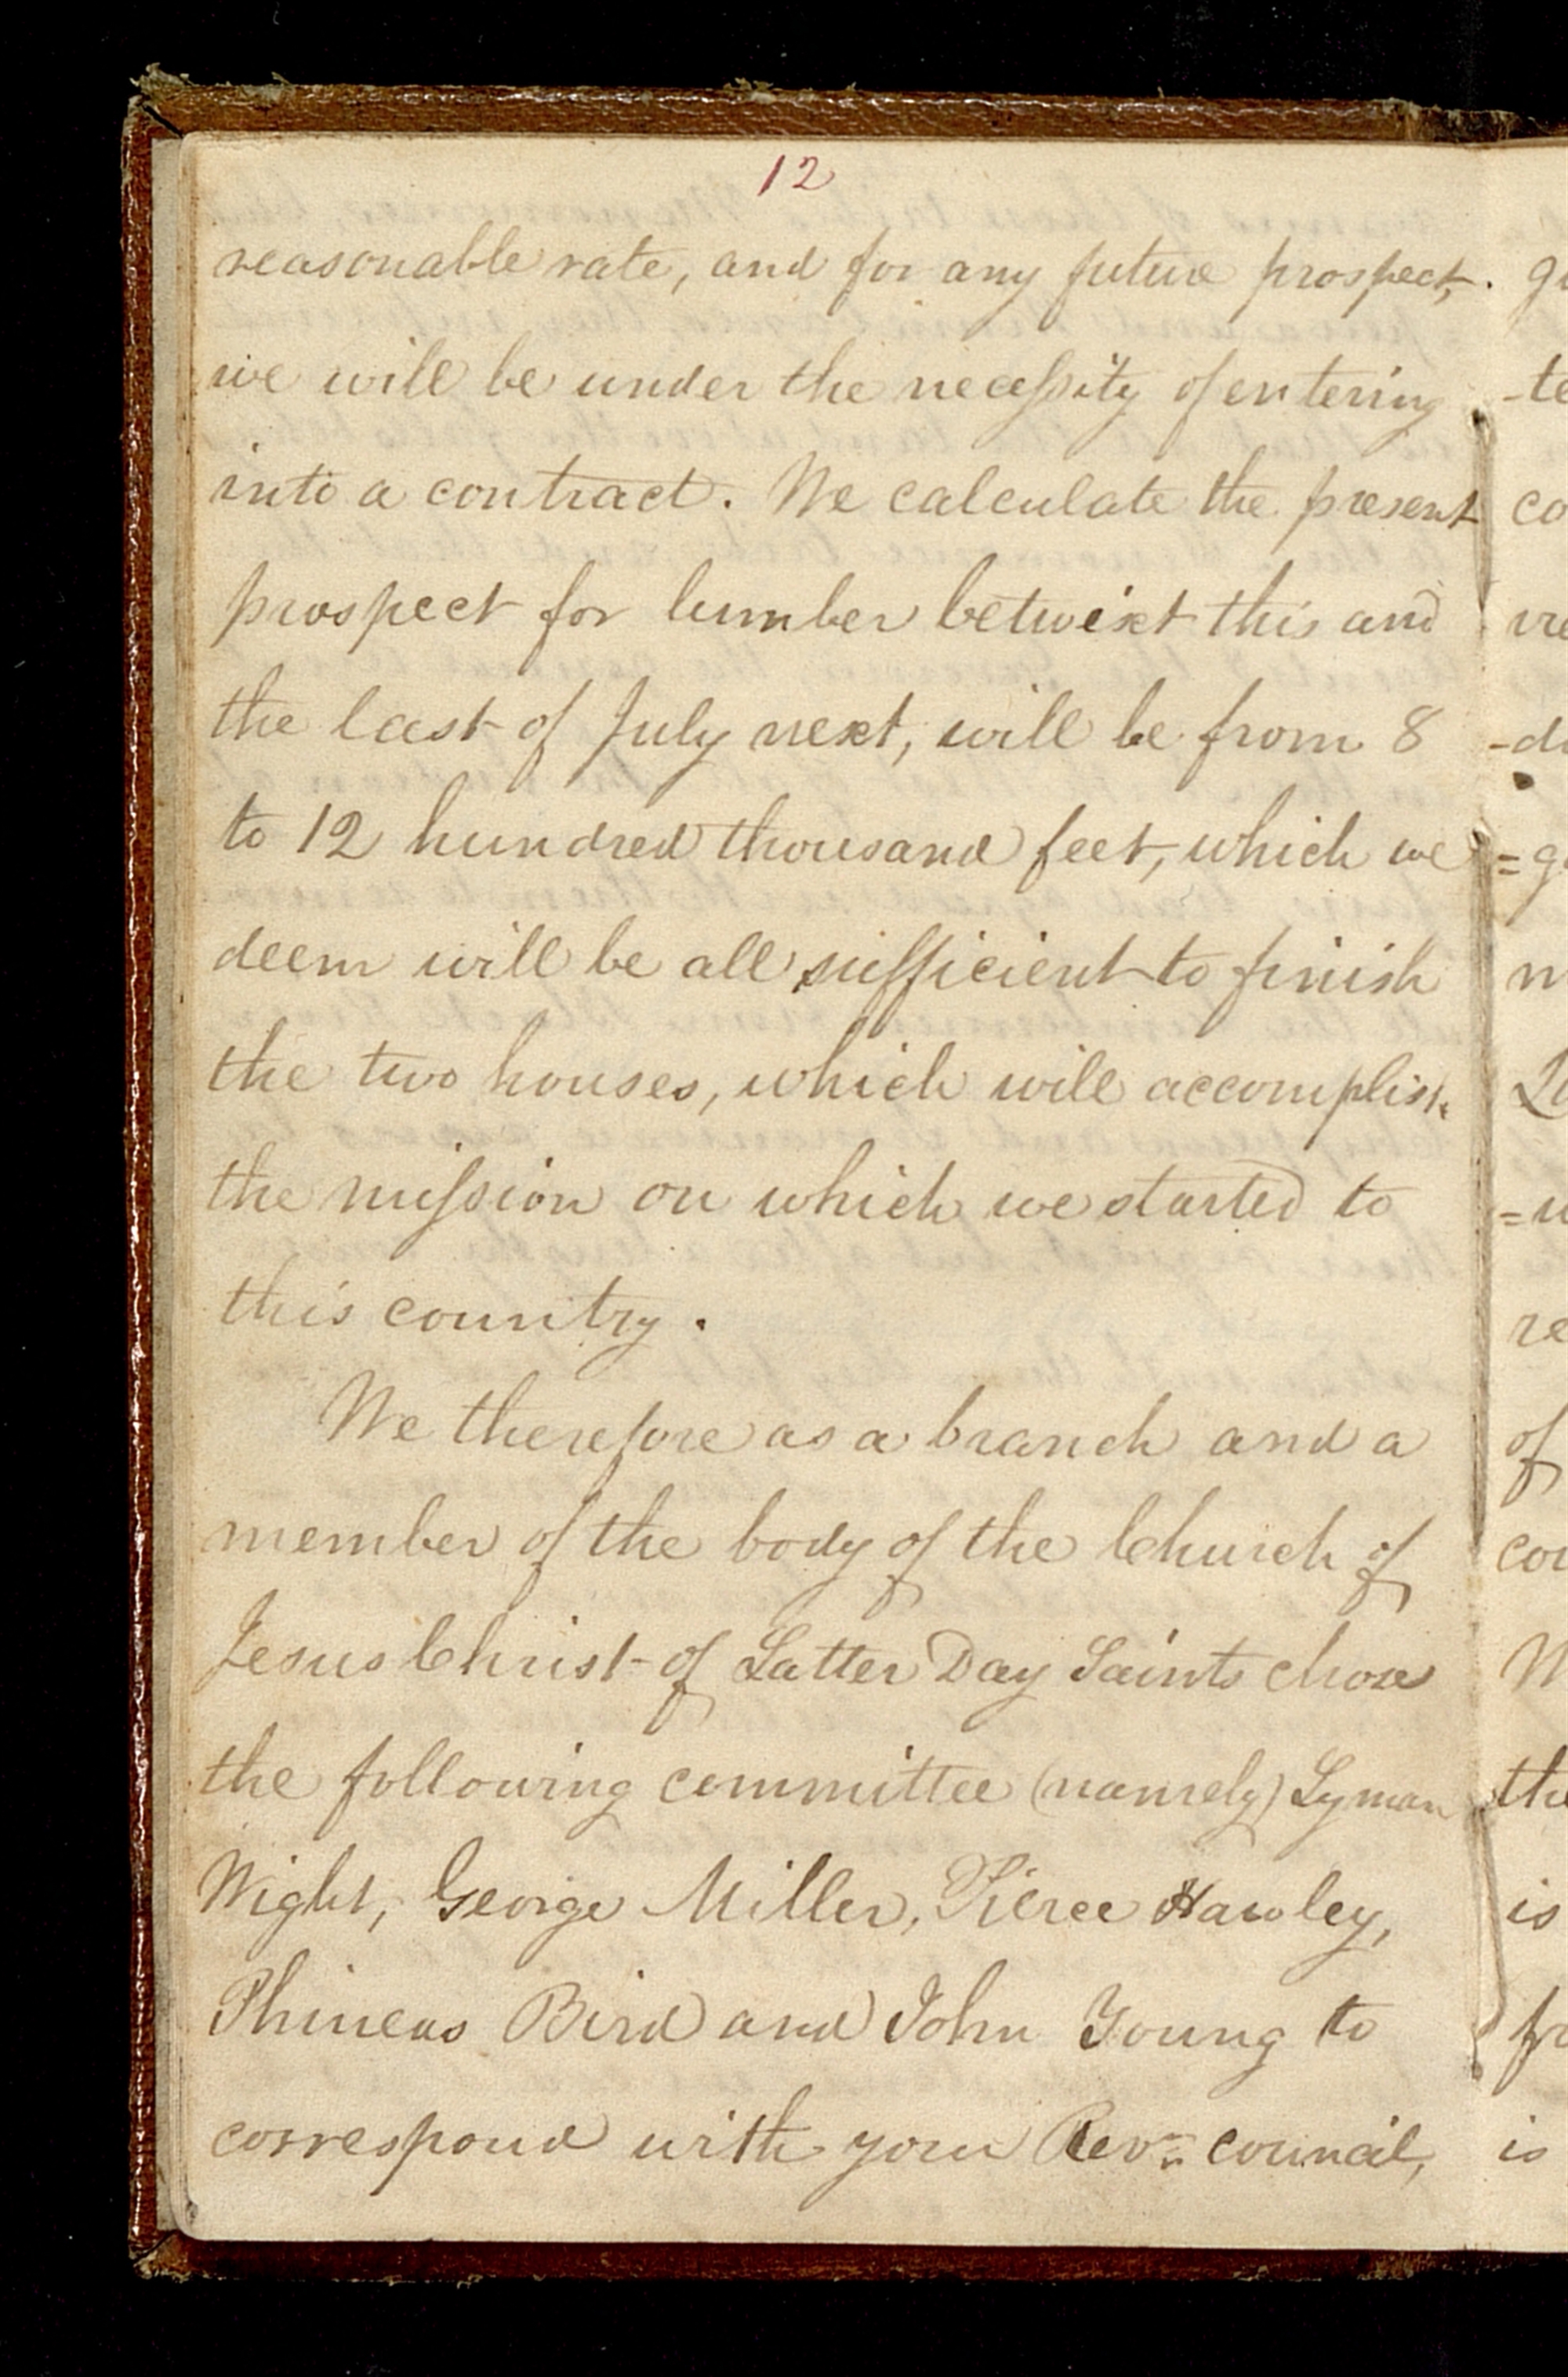 12
reasonable rate, and for any future prospect,
we will be under the necessity of entering
into a contract. We calculate the present
prospect for lumber betwixt this and
the last of July next, will be from 8
to 12 hundred thousand feet, which we
deem will be all sufficient to finish
the two houses, which will accomplish
the mission on which we started to
this country.
We therefore as a branch and a
member of the body of the Church of
Jesus Christ of Latter Day Saints chose
the following committee (namely) Lyman
Wight, George Miller, Pierce Hawley,
Phineas Bird and John Young to
correspond with your Revn. council,